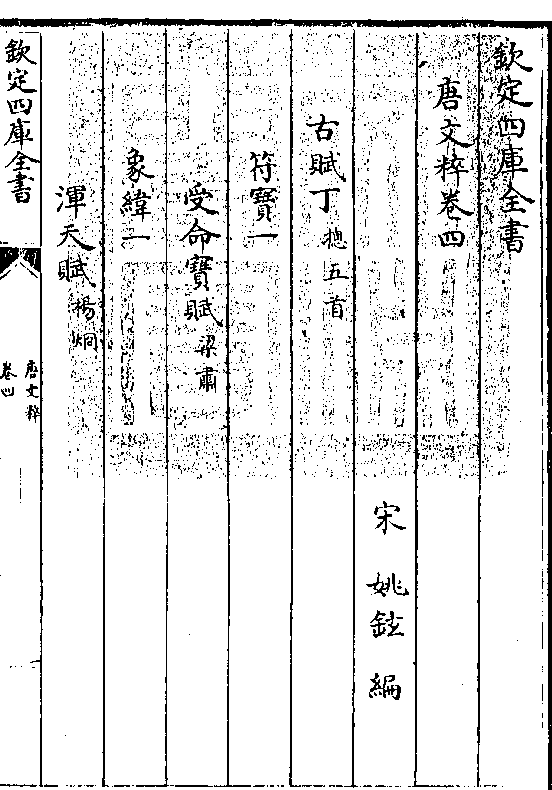 欽定四庫全書
唐文粹卷四
宋 姚鉉 編
古賦丁 摠五首
符寶一
受命寶賦 梁肅
象緯一
渾天賦 楊炯
欽定四庫全書
唐文粹
卷四